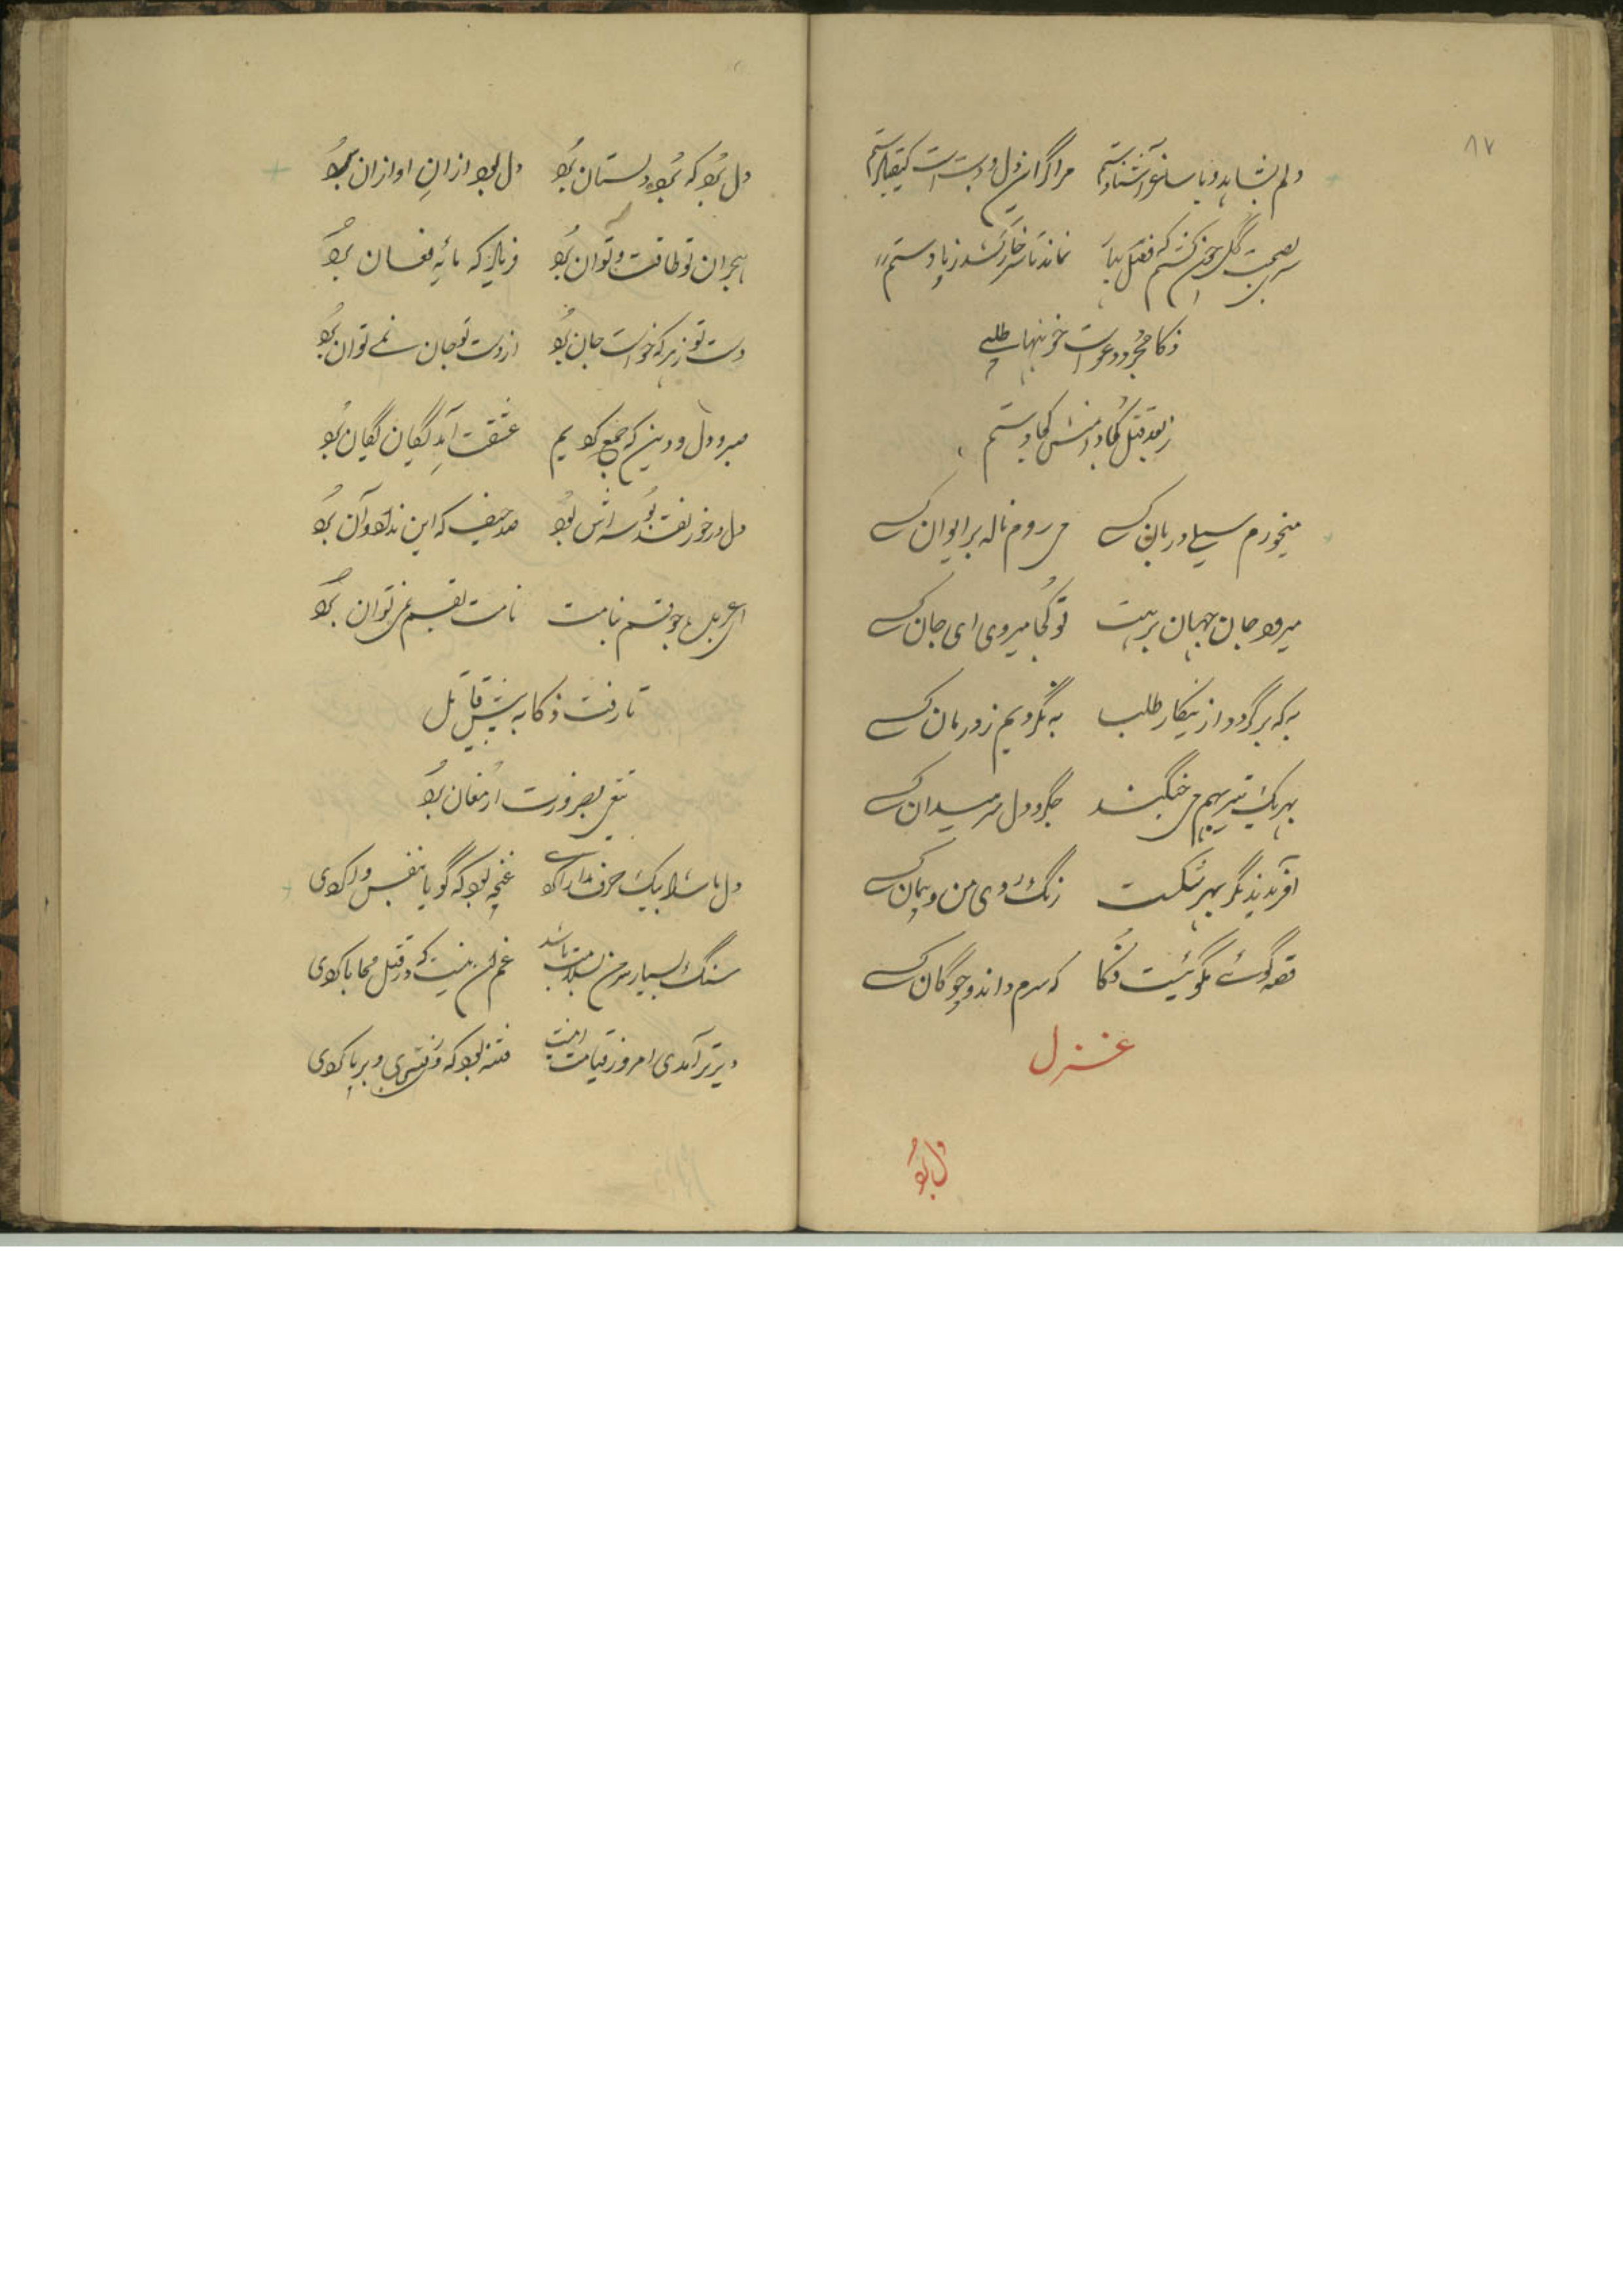 ۸۷
دلم بشاهد و با ساغر آشنا دستم مرا گران دل و دست است
بصحبت گل نماند تا سر خار کشد ز پا دستم
ذکا
ز بعد قتل کجا دامنش کجا دستم
میخورم سیلی دربان کسی می روم ناله بر ایوان کسی
میرود جان جهان بر پیت تو کجا میروی ای جان کسی
به که برگردد از ینکار طلب به نگردیم ز درمان کسی
بهر یک تیر بهم می جنگند جگر و دل سر میدان کسی
آفریدند مگر بهر شکست رنگ روی من و پیمان کسی
قصه گوی مگوئیست ذکا که سرم داند و چوگان کسی
غزل
دل برد
دل برد که برد دلستان برد دل بود از ان او ازان برد
هجران تو طاقت و توان برد فریاد که مایه فغان برد
دست تو زهر که خواست جان برد از دست تو جان نمے توان برد
صبر و دل و دین که جمع کردیم عشقت آمد یگان یگان برد
دل در خور نقد بوسه اش بود صد حیف که این نداد و آن برد
نامت نامت بقسم نمی توان برد
تا رفت ذکا به پیش قاتل
تیغی بضرورت ارمغان برد
دل ما را بیک حرف مدارا کردی غنچه بود که گویا بنفس وا کردی
سنگ بسیار سر من بسلامت باشد غم من نیست که در قتل محابا کردی
دیرتر آمدی امروز قیامت اینست فتنه بود که و برپا کردی